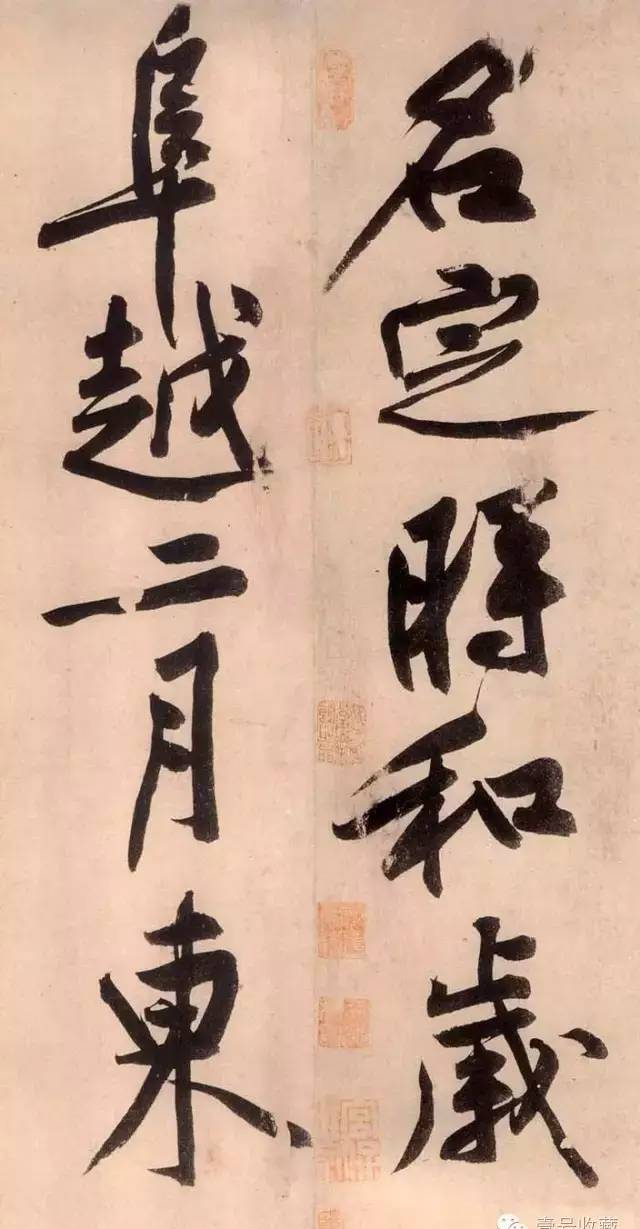 名定時和歲
阜越二月東
壹号收藏